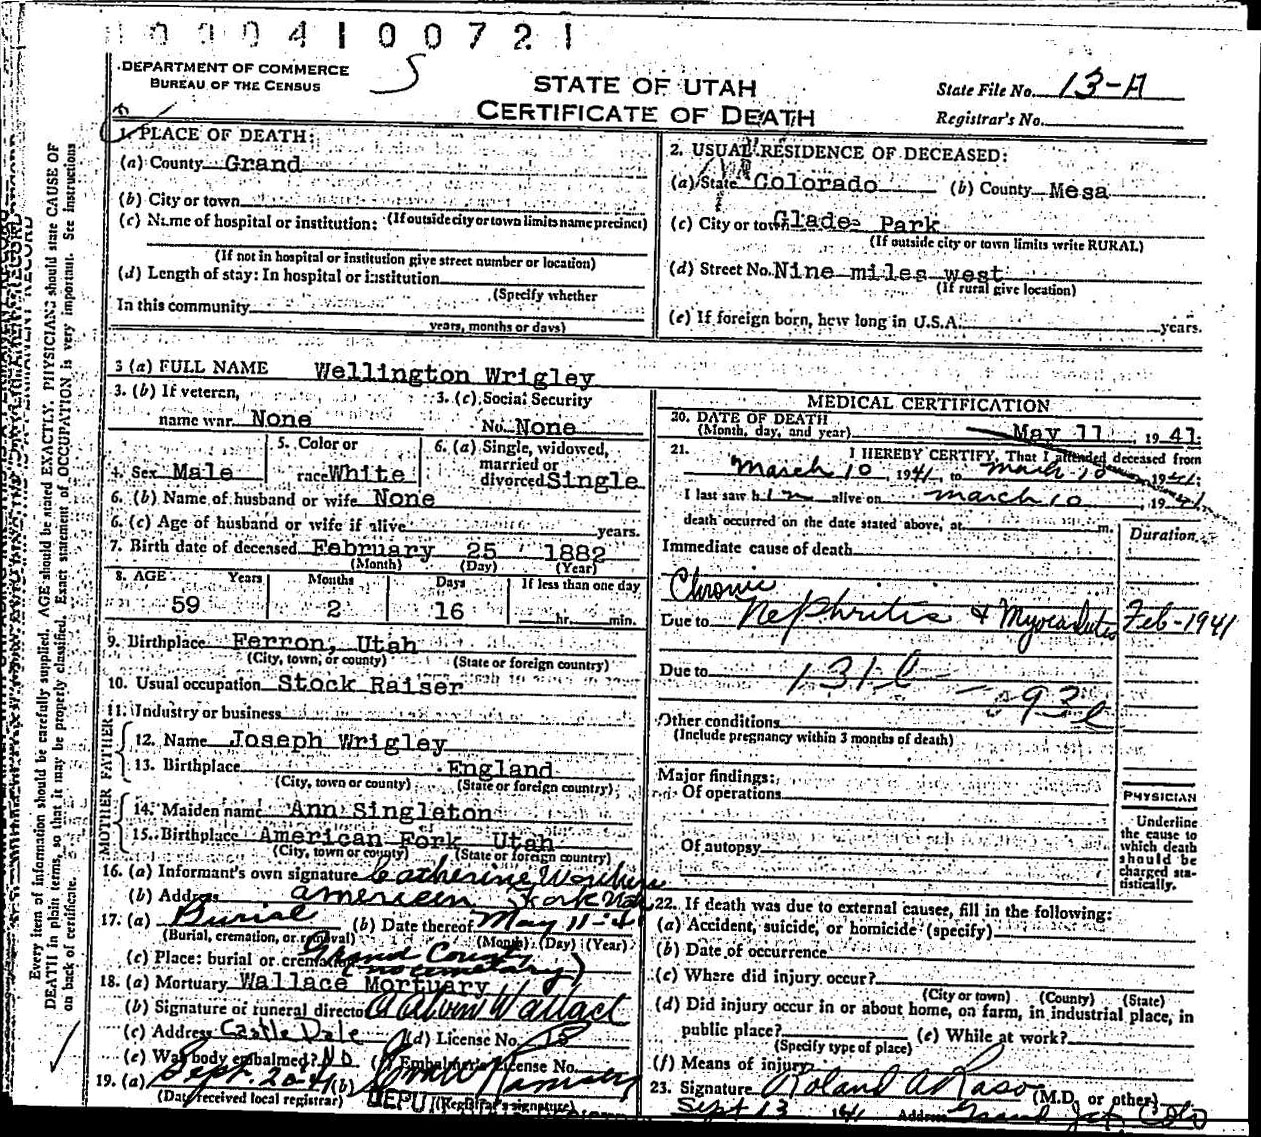 1 0 0 0 4 1 0 0 7 2 1
DEPARTMENT OF COMMERCE
BUREAU OF THE CENSUS
S
STATE OF UTAH
CERTIFICATE OF DEATH
State File No. 13-A
Registrar's No.
1. PLACE OF DEATH:
(a) County Grand
(b) City or town
(c) Name of hospital or institution: (If outside city or town limits name precinct)
(If not in hospital or institution give street number or location)
(d) Length of stay: In hospital or institution
(Specify whether
In this community
years, months or days)
2. USUAL RESIDENCE OF DECEASED:
(a) State Colorado (b) County Mesa
(c) City or town Glade Park
(If outside city or town limits write RURAL)
(d) Street No. Nine miles west
(If rural give location)
(e) If foreign born, how long in U.S.A. years.
3 (a) FULL NAME Wellington Wrigley
3. (b) If veteran, name war None
3. (c) Social Security No. None
4. Sex Male
5. Color or race White
6. (a) Single, widowed, married or divorced Single
6. (b) Name of husband or wife None
6. (c) Age of husband or wife if alive years.
7. Birth date of deceased February 25 1882
(Month) (Day) (Year)
8. AGE Years Months Days If less than one day
59 2 16 hr. min.
9. Birthplace Ferron, Utah
(City, town, or county) (State or foreign country)
10. Usual occupation Stock Raiser
11. Industry or business
FATHER
12. Name Joseph Wrigley
13. Birthplace England
(City, town or county) (State or foreign country)
MOTHER
14. Maiden name Ann Singleton
15. Birthplace American Fork Utah
(City, town or county) (State or foreign country)
16. (a) Informant's own signature Catherine
(b) Address American Fork Utah
17. (a) Burial (b) Date thereof May 11-41
(Burial, cremation, or removal) (Month) (Day) (Year)
(c) Place: burial or cremation Grand County
(no cemetery)
18. (a) Mortuary Wallace Mortuary
(b) Signature of funeral director Wallace
(c) Address Castle Dale (d) License No. 15
(e) Was body embalmed? No (f) Embalmer's License No.
19. (a) Sept. 20-41 (b)
(Date received local registrar) DEPUTY (Registrar's signature)
MEDICAL CERTIFICATION
20. DATE OF DEATH
(Month, day, and year) May 11, 1941.
21. I HEREBY CERTIFY, That I attended deceased from
March 10, 1941, to March 10 1941;
I last saw him alive on March 10, 1941
death occurred on the date stated above, at m.
Duration
Immediate cause of death
Chronic
Due to Nephritis & Myocarditis Feb-1941
Due to 131 93
Other conditions
(Include pregnancy within 3 months of death)
Major findings:
Of operations
Of autopsy
PHYSICIAN
Underline
the cause to
which death
should be
charged sta-
tistically.
22. If death was due to external causes, fill in the following:
(a) Accident, suicide, or homicide (specify)
(b) Date of occurrence
(c) Where did injury occur?
(City or town) (County) (State)
(d) Did injury occur in or about home, on farm, in industrial place, in
public place? (e) While at work?
(Specify type of place)
(f) Means of injury
23. Signature Roland A Raso (M.D. or other)
Sept 13 41 Address Grand Jct. Colo
Every item of information should be carefully supplied. AGE should be stated EXACTLY. PHYSICIANS should state CAUSE OF
DEATH in plain terms, so that it may be properly classified. Exact statement of OCCUPATION is very important. See instructions
on back of certificate.